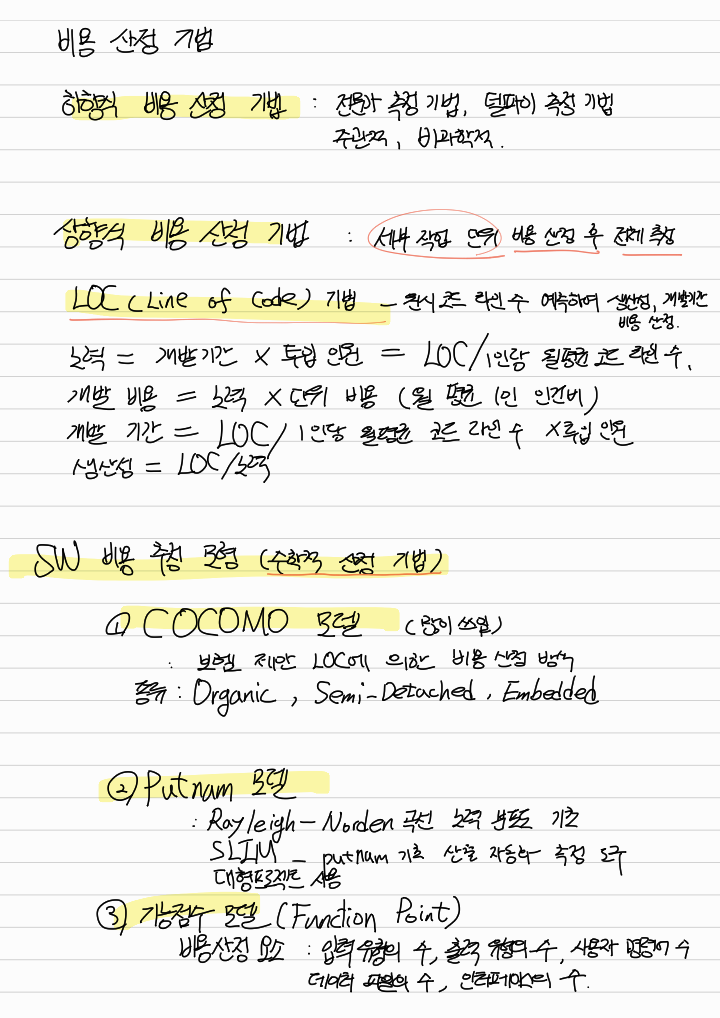 비용 산정 기법
하향식 비용 산정 기법 : 전문가 측정 기법, 델파이 측정 기법
주관적, 비과학적.
상향식 비용 산정 기법 : 세부 작업 단위 비용 산정 후 전체 측정
LOC (Line of Code) 기법 - 원시 코드 라인 수 예측하여 생산성, 개발기간
비용 산정.
노력 = 개발기간 X 투입 인원 = LOC/1인당 월평균 코드 라인 수.
개발 비용 = 노력 X 단위 비용 (월 평균 1인 인건비)
개발 기간 = LOC/1인당 월평균 코드 라인 수 X 투입 인원
생산성 = LOC/노력
SW 비용 추정 모형 (수학적 산정 기법)
① COCOMO 모델 (많이 쓰임)
: 보헴 제안 LOC에 의한 비용 산정 방식
종류 : Organic, Semi-Detached, Embedded
② Putnam 모델
: Rayleigh-Norden 곡선 노력 분포도 기초
SLIM - putnam 기초 산출 자동화 측정 도구
대형프로젝트 사용
③ 기능점수 모델 (Function Point)
비용산정 요소 : 입력 유형의 수, 출력 유형의 수, 사용자 명령어 수
데이터 파일의 수, 인터페이스의 수.